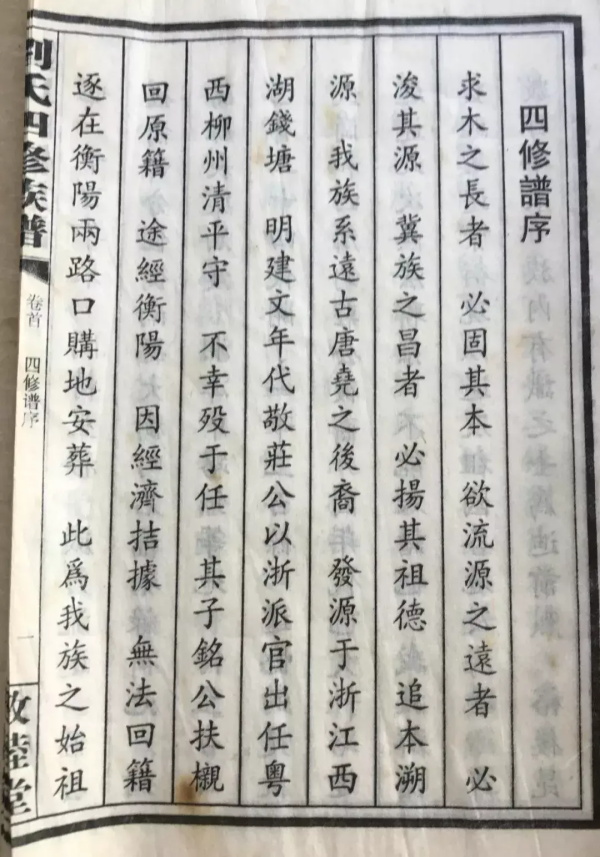 四修譜序
求木之長者 必固其本 欲流源之遠者 必
浚其源 冀族之昌者 必揚其祖德 追本溯
源 我族系遠古唐堯之後裔 發源于浙江西
湖錢塘 明建文年代敬莊公以浙派官出任粵
西柳州清平守 不幸殁于任 其子銘公扶櫬
回原籍 途經衡陽 因經濟拮據 無法回籍
逐在衡陽兩路口購地安葬 此爲我族之始祖
劉氏四修族譜
卷首 四修谱序
一
敦睦堂